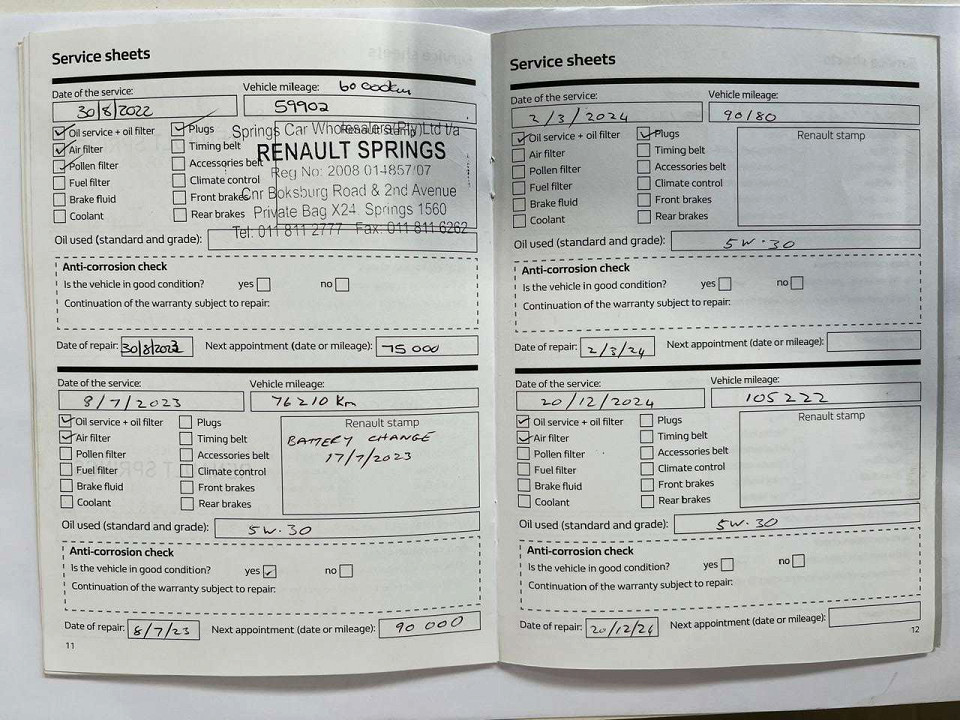 Service sheets
Date of the service: Vehicle mileage: 60 000km
30/8/2022 59902
Oil service + oil filter Plugs
Air filter Timing belt
Pollen filter Accessories belt
Fuel filter Climate control
Brake fluid Front brakes
Coolant Rear brakes
Renault stamp
Springs Car Wholesalers (Pty) Ltd t/a
RENAULT SPRINGS
Reg No: 2008 014857/07
Cnr Boksburg Road & 2nd Avenue
Private Bag X24, Springs 1560
Tel: 011 811 2777 Fax: 011 811 6262
Oil used (standard and grade):
Anti-corrosion check
Is the vehicle in good condition? yes no
Continuation of the warranty subject to repair:
Date of repair: Next appointment (date or mileage): 75 000
Date of the service: Vehicle mileage:
8/7/2023 76210 Km
Oil service + oil filter Plugs
Air filter Timing belt
Pollen filter Accessories belt
Fuel filter Climate control
Brake fluid Front brakes
Coolant Rear brakes
Renault stamp
BATTERY CHANGE
17/7/2023
Oil used (standard and grade): 5W.30
Anti-corrosion check
Is the vehicle in good condition? yes no
Continuation of the warranty subject to repair:
Date of repair: 8/7/23 Next appointment (date or mileage): 90 000
11
Service sheets
Date of the service: Vehicle mileage:
2/3/2024 90180
Oil service + oil filter Plugs
Air filter Timing belt
Pollen filter Accessories belt
Fuel filter Climate control
Brake fluid Front brakes
Coolant Rear brakes
Renault stamp
Oil used (standard and grade): 5W.30
Anti-corrosion check
Is the vehicle in good condition? yes no
Continuation of the warranty subject to repair:
Date of repair: 2/3/24 Next appointment (date or mileage):
Date of the service: Vehicle mileage:
20/12/2024 105222
Oil service + oil filter Plugs
Air filter Timing belt
Pollen filter Accessories belt
Fuel filter Climate control
Brake fluid Front brakes
Coolant Rear brakes
Renault stamp
Oil used (standard and grade): 5W.30
Anti-corrosion check
Is the vehicle in good condition? yes no
Continuation of the warranty subject to repair:
Date of repair: 20/12/24 Next appointment (date or mileage):
12